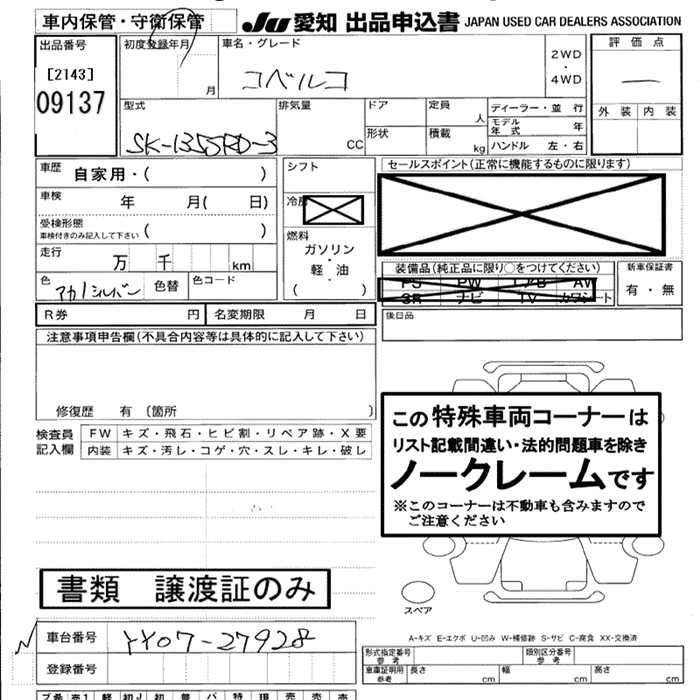 車内保管・守衛保管
JU 愛知 出品申込書 JAPAN USED CAR DEALERS ASSOCIATION
出品番号
[2143]
09137
初度登録年月
月
車名・グレード
コベルコ
2WD
・
4WD
評価点
外装 内装
型式
SK-135SRD-3
排気量
CC
ドア
形状
定員
人
積載
kg
ディーラー・並行
モデル年式 年
ハンドル 左・右
車歴
自家用・( )
車検
年 月( 日)
受検形態
車検付きのみ記入して下さい ( )
走行
万 千 km
色
アカ/シルバー
色替
色コード
シフト
冷房
燃料
ガソリン
・
軽・油
( )
セールスポイント(正常に機能するものに限ります)
装備品(純正品に限り○をつけてください)
PS PW エアB AW
SR ナビ TV カワシート
新車保証書
有・無
R券 円
名変期限 月 日
後日品
注意事項申告欄(不具合内容等は具体的に記入して下さい)
修復歴 有 〔箇所 〕
検査員
記入欄
FW キズ・飛石・ヒビ割・リペア跡・X要
内装 キズ・汚レ・コゲ・穴・スレ・キレ・破レ
この特殊車両コーナーは
リスト記載間違い・法的問題車を除き
ノークレームです
※このコーナーは不動車も含みますので
ご注意ください
書類 譲渡証のみ
スペア
A-キズ E-エクボ U-凹み W-補修跡 S-サビ C-腐食 XX-交換済
車台番号
YY07-27928
登録番号
形式指定番号
参考
類別区分番号
参考
車庫証明用
参考
長さ cm
幅 cm
高さ cm